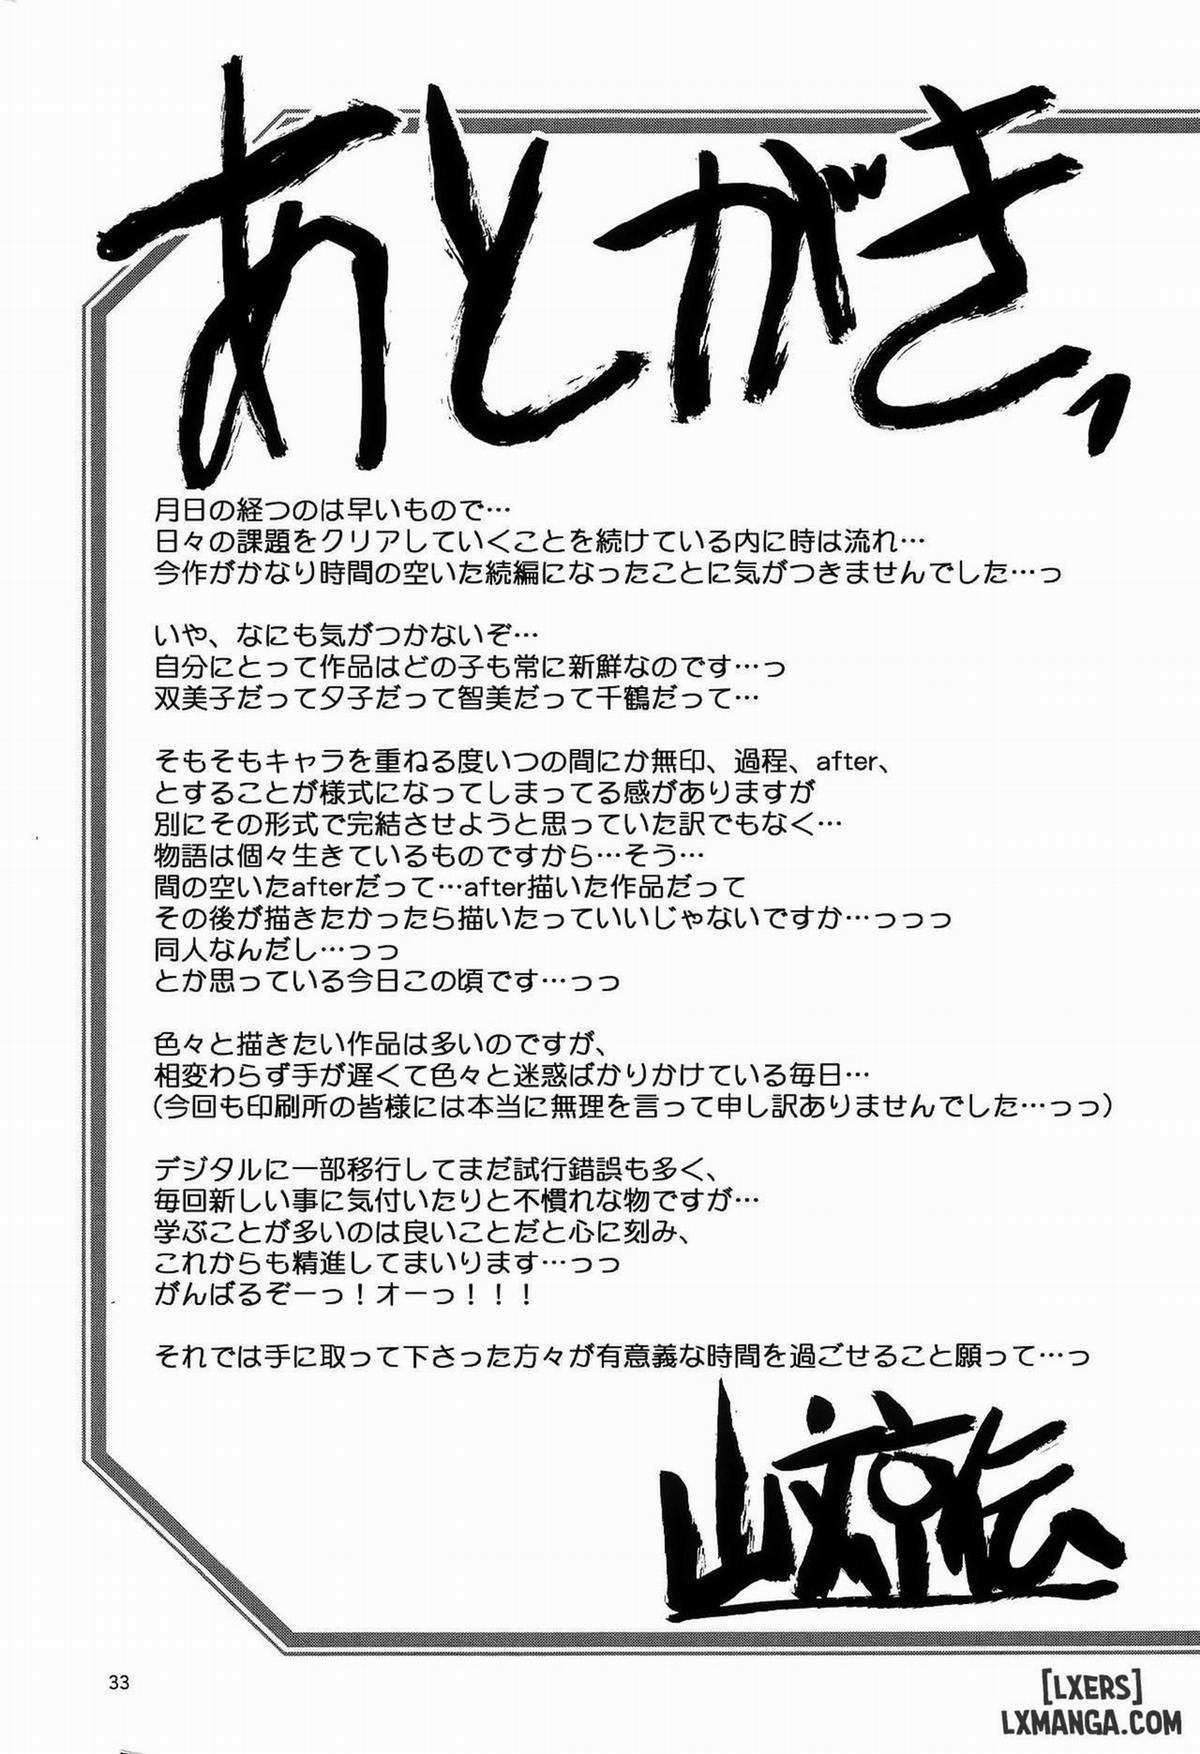 あとがき、
月日の経つのは早いもので…
日々の課題をクリアしていくことを続けている内に時は流れ…
今作がかなり時間の空いた続編になったことに気がつきませんでした…っ
いや、なにも気がつかないぞ…
自分にとって作品はどの子も常に新鮮なのです…っ
双美子だって夕子だって智美だって千鶴だって…
そもそもキャラを重ねる度いつの間にか無印、過程、after、
とすることが様式になってしまってる感がありますが
別にその形式で完結させようと思っていた訳でもなく…
物語は個々生きているものですから…そう…
間の空いたafterだって…after描いた作品だって
その後が描きたかったら描いたっていいじゃないですか…っっっ
同人なんだし…っっ
とか思っている今日この頃です…っっ
色々と描きたい作品は多いのですが、
相変わらず手が遅くて色々と迷惑ばかりかけている毎日…
（今回も印刷所の皆様には本当に無理を言って申し訳ありませんでした…っっ）
デジタルに一部移行してまだ試行錯誤も多く、
毎回新しい事に気付いたりと不慣れな物ですが…
学ぶことが多いのは良いことだと心に刻み、
これからも精進してまいります…っっ
がんばるぞーっ！オーっ！！！
それでは手に取って下さった方々が有意義な時間を過ごせること願って…っ
33
[LXERS]
LXMANGA.COM